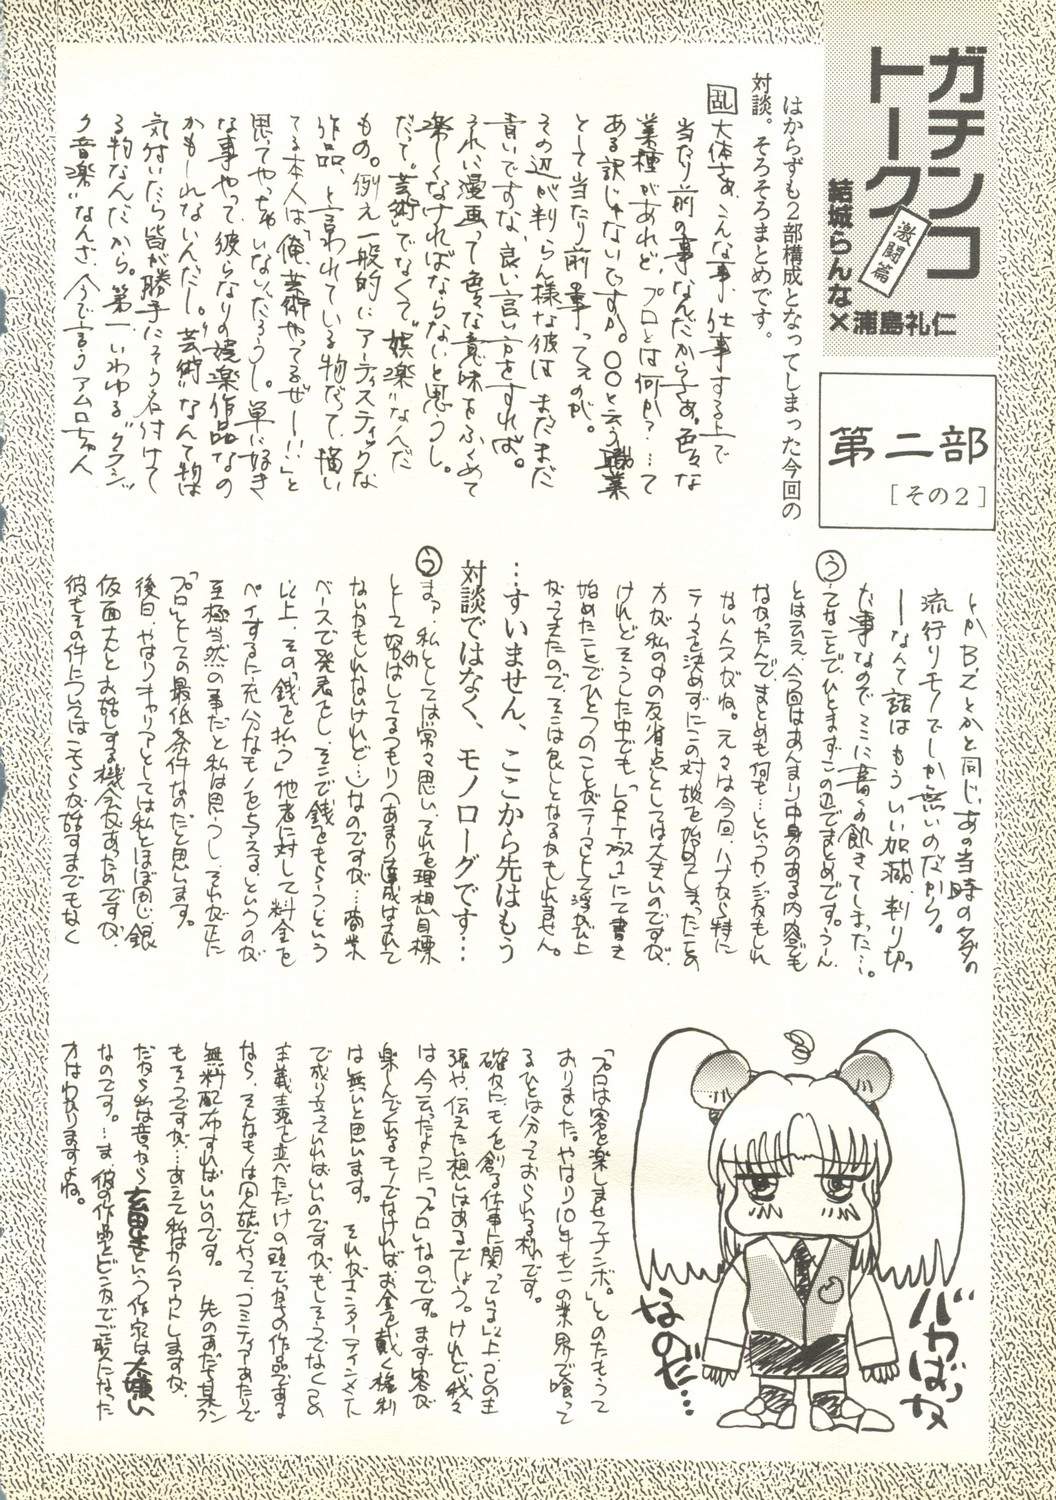 ガチンコ
トーク
激闘篇
結城らんな×浦島礼仁
第二部
[その2]
はからずも2部構成となってしまった今回の
対談。そろそろまとめです。
乱 大体さぁ、こんな事、仕事する上で
当たり前の事なんだからさぁ。色々な
業種があれど、プロとは何か?…って
ある訳じゃないですか。〇〇と云う職業
として当たり前の事ってえのが。
その辺が判らん様な彼はまだまだ
青いですな、良い言い方をすれば。
うれに漫画って色々な意味をふくめて
楽しくなければならないと思うし。
だって“芸術”でなくて“娯楽”なんだ
もの。例え一般的にアーティスティックな
作品、と言われている物だって、描い
てる本人は「俺、芸術やってるぜー!!」と
思ってやっちゃいないだろうし。単に好き
な事やって、彼らなりの娯楽作品なの
かもしれないんだし。“芸術”なんて物は
気付いたら皆が勝手にそう名付けて
る物なんだから。第一、いわゆる“クラシッ
ク音楽”なんざ、今で言うアムロちゃん
とかB'zとかと同じ、あの当時のタダの
流行りモノでしか無いのだから。
―なんて話はもういい加減、判り切っ
た事なのでミミに書くの飽きてしまった…。
う てなことでひとまずこの辺でまとめです。うん、
とは云え、今回はあんまり中身のある内容でも
なかったんで、まとめも何も…というカンジかもしれ
ない人々がね。元々は今回、ハナから特に
テーマを決めずにこの対談を始めてしまったことの
方が私の中の反省点としては大きいのですが、
けれどそうした中でも、
始めたことでひとつのことがテーマとして浮かび上
がってきたので、そこは良しとなるかもしれません。
…すいません、ここから先はもう
対談ではなく、モノローグです…
う まァ、私としては常々思い、それを理想、目標
として努力はしてるつもり(あまり達成はされて
ないかもしれないけれど…)なのですが…商業
ベースで発表をし、そこで銭をもらうという
以上、その「銭を払う」他者に対して料金を
ペイするに充分なモノを与えるというのが
至極当然の事だと私は思うし、それが正に
「プロ」としての最低条件なのだと思います。
後日、やはりキャリアとしては私とほぼ同じ銀
仮面さんとお話しする機会があったのですが、
彼もその件についてはこちらが話すまでもなく
「プロは客を楽しませてナンボ。」とのたもうて
おりました。やはり10年もこの業界で喰って
るひとは分っておられる訳です。
確かにモノを創る仕事に関っている以上、己の主
張や、伝えたい想いはあるでしょう。けれど我々
は今云ったように「プロ」なのです。まず客が
楽しんで くれるモノでなければお金を戴く権利
は無いと思います。それがエンターテインメント
で成り立っていればいいのですが、もしそうでなく己の
主義主張を並べただけの頭でっかちの作品である
なら、そんなモノは同人誌でやって、コミティアあたりで
無料配布すればいいのです。先のあだち某クン
もそうですが…あえて私はカムアウトしますが、
だから私は昔から 玄田生という作家は大嫌い
なのです。…ま、彼の作品とビンタでご覧になった
方はわかりますよね。
バカばっか
なのだ…